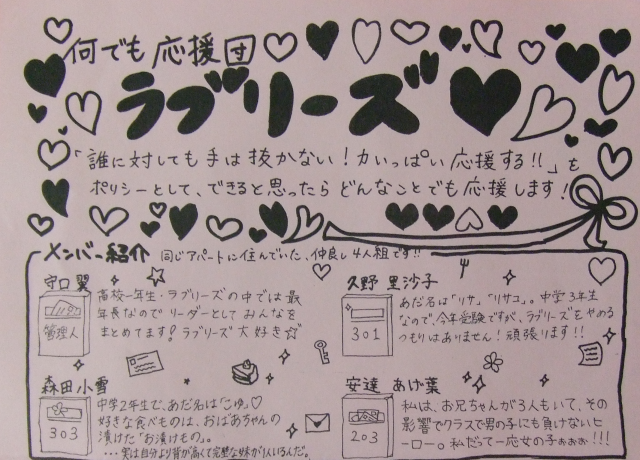 何でも応援団
ラブリーズ
「誰に対しても手は抜かない!力いっぱい応援する!!」を
ポリシーとして、できると思ったらどんなことでも応援します!
メンバー紹介 同じアパートに住んでいた、仲良し4人組です!!
守口 翼
管理人
高校一年生・ラブリーズの中では最
年長なのでリーダーとしてみんなを
まとめてます?ラブリーズ大好き☆
久野 里沙子
301
あだ名は「リサ」「リサコ」。中学3年生
なので、今年受験ですが、ラブリーズをやめる
つもりはありません!頑張ります!!
森田 小雪
303
中学2年生で、あだ名は「こゆ」♡
好きな食べものは、おばあちゃんの
漬けた「お漬けもの」。
・・・実は自分より背が高くて完璧な妹が1人いるんだ。
安達 あげ葉
203
私は、お兄ちゃんが3人もいて、その
影響でクラスで男の子にも負けないヒ
ーロー。私だって一応女の子ぉぉぉ!!!